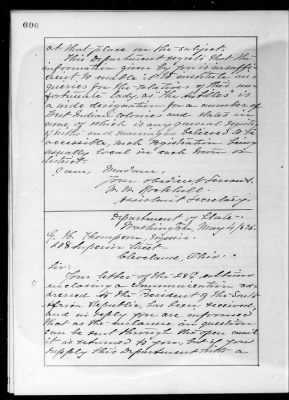 696
at that place on the subject.
This Department regrets that the
information given by you is insuffi-
cient to enable it to institute in-
quiries for the relatives of this un-
fortunate lady, as "the Antilles" is
a wide designation for a number of
West Indian Colonies and States in
none of which is any general registry
of births and marriages believed to be
accessible, such registration being
usually local in each town or
district.
I am, Madam,
Your obedient servant,
W. W. Rockhill
Assistant Secretary.
Department of State.
Washington, May 4, 1896.
G. H. Thompson, Esquire.
Superior Street
Cleveland, Ohio.
Sir:
Your letter of the 28th ultimo
enclosing a communication ad-
dressed to the President of the South
African Republic has been received,
and in reply you are informed
that as the enclosure in question
can be sent through the open mail
it is returned to you, but if you
supply this Department with a